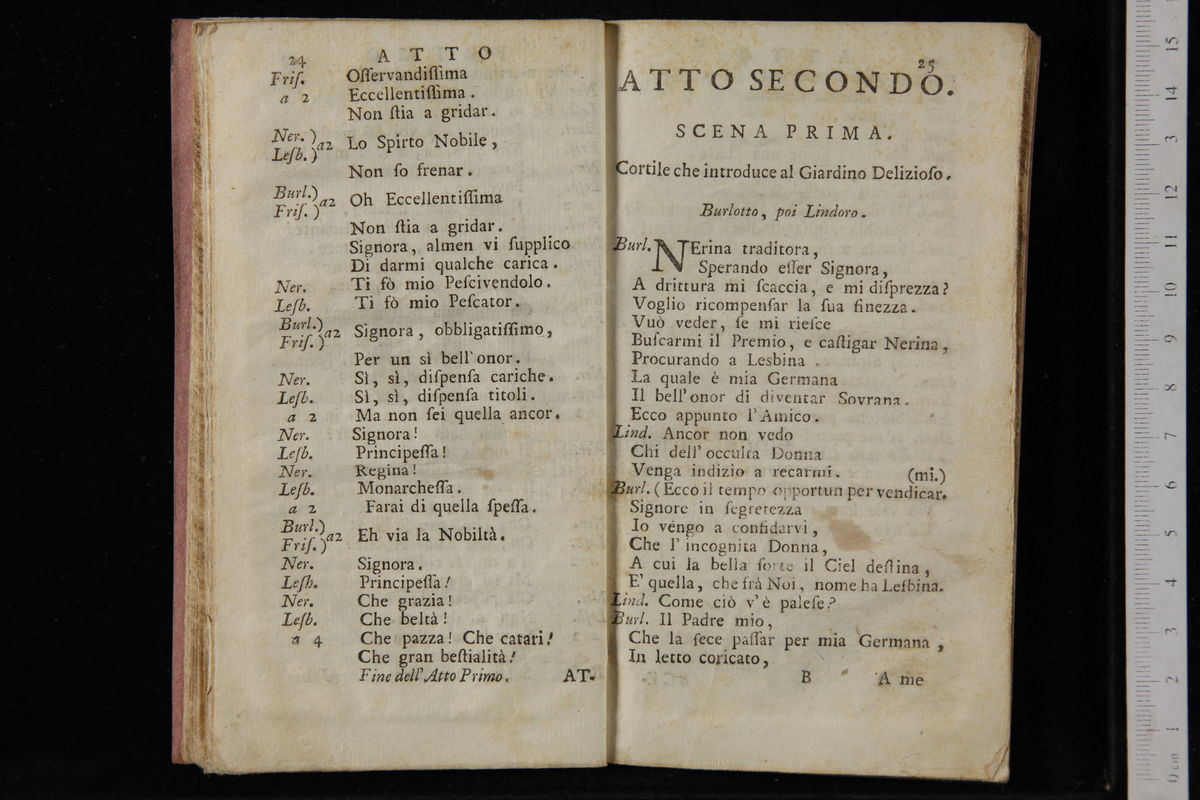 24
ATTO
Friſ. Oſſervandiſſima
a 2 Eccellentiſſima.
Non ſtia a gridar.
Ner. )
Leſb. ) a2 Lo Spirto Nobile,
Non ſo frenar.
Burl.)
Friſ. ) a2 Oh Eccellentiſſima
Non ſtia a gridar.
Signora, almen vi ſupplico
Di darmi qualche carica.
Ner. Ti fò mio Peſcivendolo.
Leſb. Ti fò mio Peſcator.
Burl.)
Friſ. ) a2 Signora, obbligatiſſimo,
Per un sì bell'onor.
Ner. Sì, sì, diſpenſa cariche.
Leſb. Sì, sì, diſpenſa titoli.
a 2 Ma non ſei quella ancor.
Ner. Signora!
Leſb. Principeſſa!
Ner. Regina!
Leſb. Monarcheſſa.
a 2 Farai di quella ſpeſſa.
Burl.)
Friſ. ) a2 Eh via la Nobiltà.
Ner. Signora.
Leſh. Principeſſa!
Ner. Che grazia!
Leſb. Che beltà!
a 4 Che pazza! Che catari!
Che gran beſtialità!
Fine dell'Atto Primo. AT-
25
ATTO SECONDO.
SCENA PRIMA.
Cortile che introduce al Giardino Delizioſo.
Burlotto, poi Lindoro.
Burl. NErina traditora,
Sperando eſſer Signora,
A drittura mi ſcaccia, e mi diſprezza?
Voglio ricompenſar la ſua finezza.
Vuò veder, ſe mi rieſce
Buſcarmi il Premio, e caſtigar Nerina,
Procurando a Lesbina.
La quale è mia Germana
Il bell'onor di diventar Sovrana.
Ecco appunto l'Amico.
Lind. Ancor non vedo
Chi dell'occulta Donna
Venga indizio a recarmi. (mi.)
Burl. (Ecco il tempo opportun per vendicar.
Signore in ſegretezza
Io vengo a confidarvi,
Che l'incognita Donna,
A cui la bella ſorte il Ciel deſtina,
E' quella, che frà Noi, nome ha Leſbina.
Lind. Come ciò v'è paleſe?
Burl. Il Padre mio,
Che la fece paſſar per mia Germana,
In letto coricato,
B A me
0 cm 1 2 3 4 5 6 7 8 9 10 11 12 13 14 15